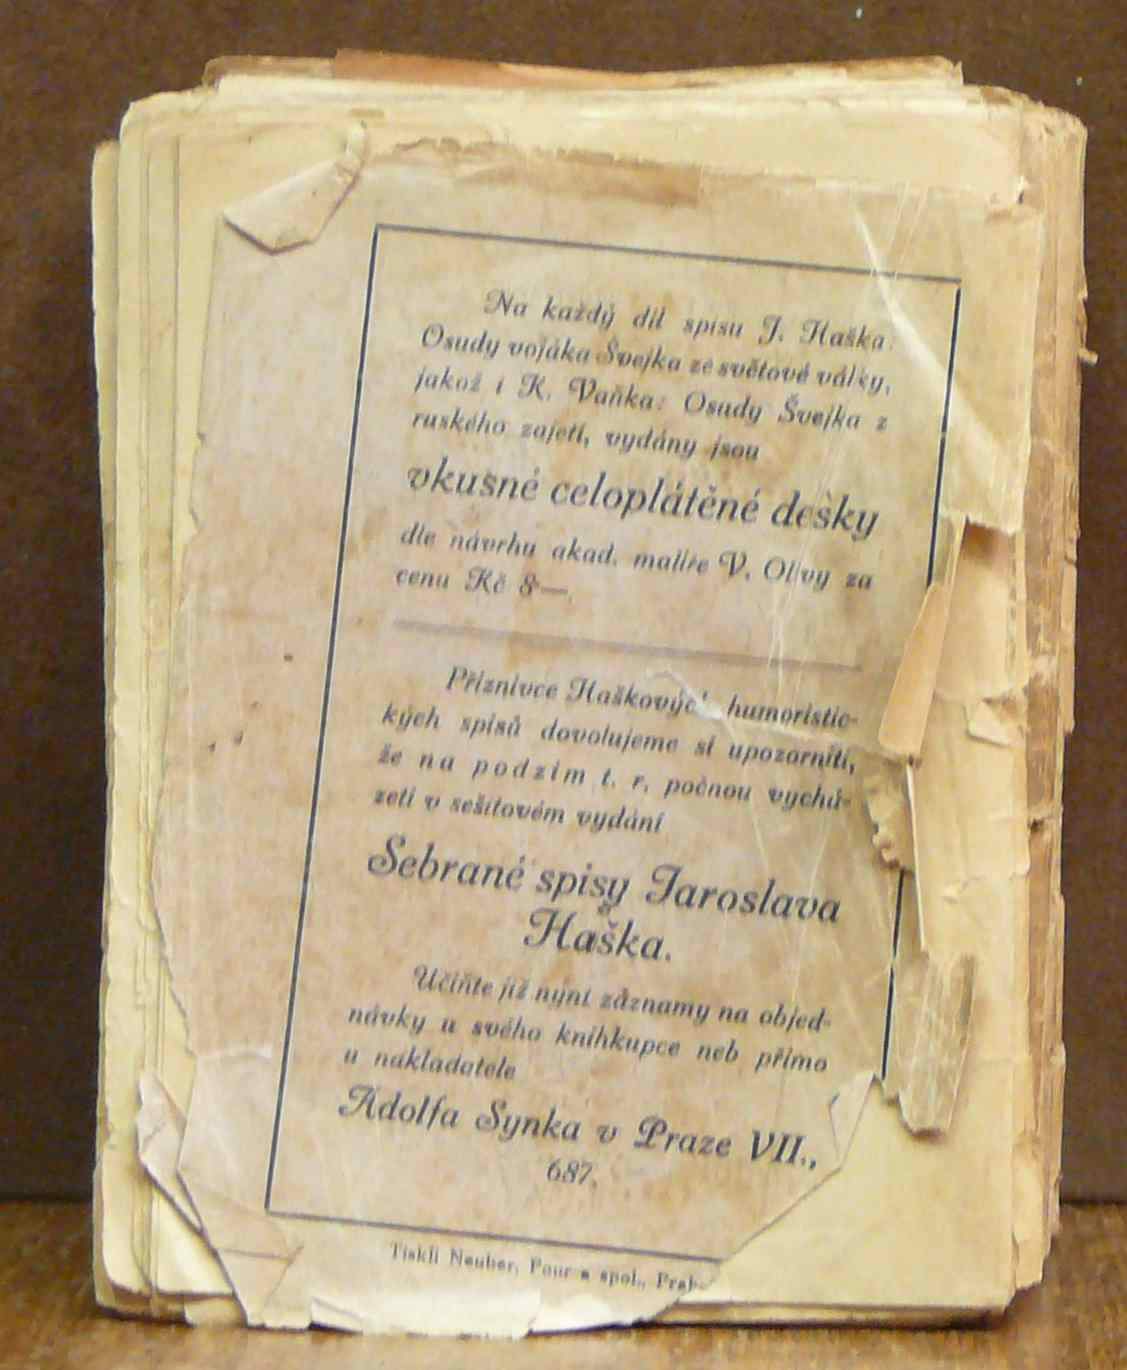 Na každý díl spisu J. Haška:
Osudy vojáka Švejka ze světové války,
jakož i K. Vaňka: Osudy Švejka z
ruského zajetí, vydány jsou
vkusné celoplátěné desky
dle návrhu akad. malíře V. Olivy za
cenu Kč 8—.
Příznivce Haškových humoristic-
kých spisů dovolujeme si upozorniti,
že na podzim t. r. počnou vychá-
zeti v sešitovém vydání
Sebrané spisy Jaroslava
Haška.
Učiňte již nyní záznamy na objed-
návky u svého knihkupce neb přímo
u nakladatele
Adolfa Synka v Praze VII.,
687.
Tiskli Neuber, Pour a spol., Praha